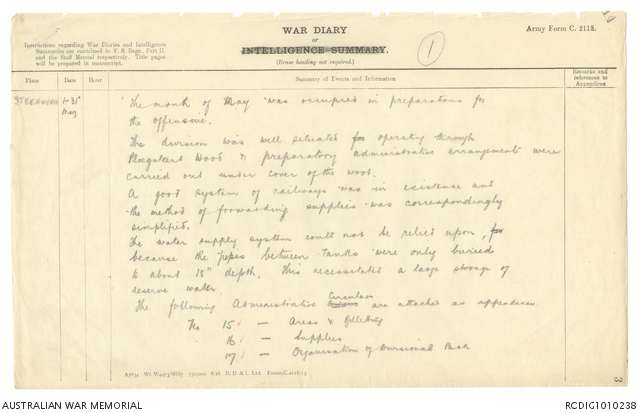 WAR DIARY
or
INTELLIGENCE SUMMARY.
(Erase heading not required.)
Army Form C. 2118.
Instructions regarding War Diaries and Intelligence
Summaries are contained in F. S. Regs., Part II.
and the Staff Manual respectively. Title pages
will be prepared in manuscript.
1
Place
Date
Hour
Summary of Events and Information
Remarks and
references to
Appendices
STEENWERCK
1-31st
May
The month of May was occupied in preparations for
the offensive.
The division was well situated for operating through
Ploegsteert Wood & preparatory administrative arrangements were
carried out under cover of the wood.
A good system of railways was in existence and
the method of forwarding supplies was correspondingly
simplified.
The water supply system could not be relied upon, for
because the pipes between tanks were only buried
to about 18" depth. This necessitated a large storage of
reserve water.
The following Administrative Circulars are attached as appendices
No 15 — Areas & Billeting
16 — Supplies
17 — Organisation of Divisional Pack
3
AUSTRALIAN WAR MEMORIAL
RCDIG1010238